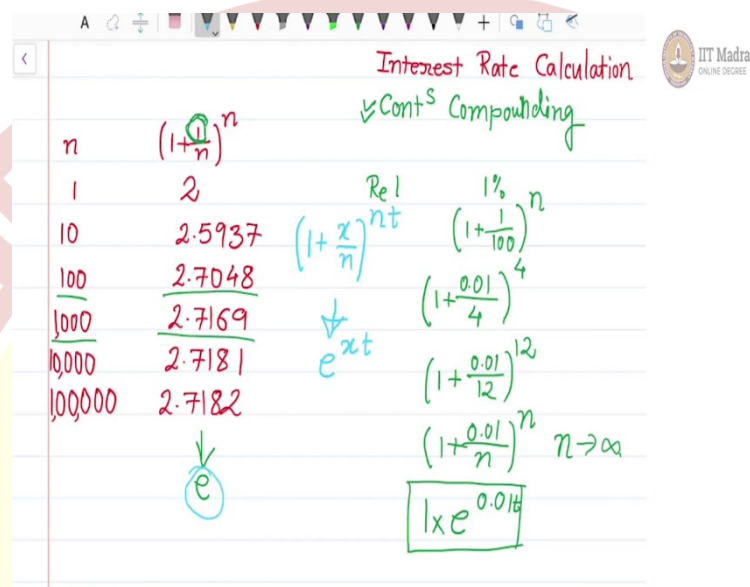 A
IIT Madra
ONLINE DEGREE
Interest Rate Calculation
Contˢ Compounding
n (1+1/n)ⁿ
1 2
10 2.5937
100 2.7048
1,000 2.7169
10,000 2.7181
1,00,000 2.7182
e
(1+x/n)ⁿᵗ
eˣᵗ
Re 1 1%
(1+1/100)ⁿ
(1+0.01/4)⁴
(1+0.01/12)¹²
(1+0.01/n)ⁿ n→∞
1×e^0.01t